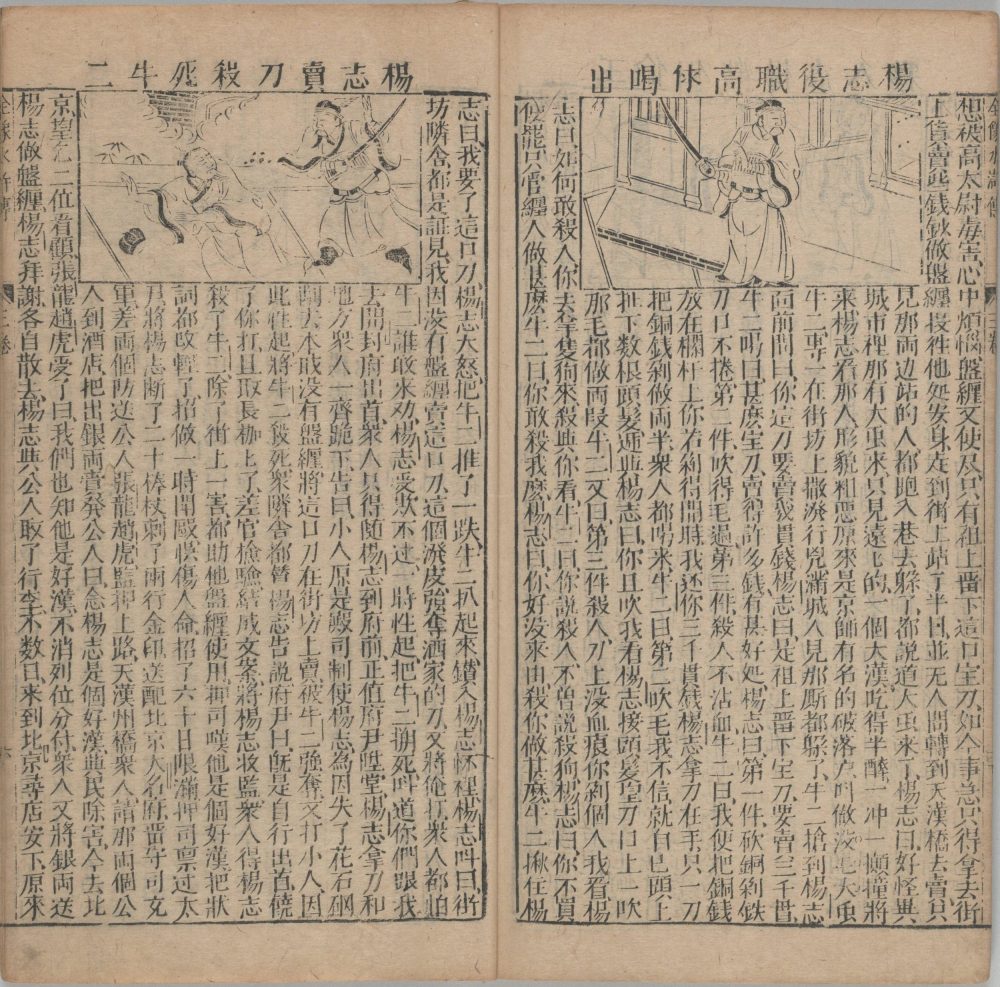 楊志復職高俅喝出
想被高太尉毒害心中煩惱盤纏又使及只有祖上畱下這口宝刀如今事急只得拿去街
上貨賣些錢鈔做盤纏投往他処安身走到街上站了半日並无人問轉到天漢橋去賣只
見那両辺站的人都跑入巷去躱了都説道大虫來了楊志曰好怪異
城市裡那有大虫來只見遠遠的一個大漢吃得半醉一冲一顛撞將
來楊志看那人形貌粗惡原來是京師有名的破落户叫做沒毛大虫
牛二專一在街坊上撒潑行兇滿城人見那厮都躱了牛二搶到楊志
面前問曰你這刀要賣幾貫錢楊志曰是祖上畱下宝刀要賣三千貫
牛二喝曰甚麽宝刀賣得許多錢有甚好処楊志曰第一件砍銅剁鉄
刀口不捲第二件吹得毛過第三件殺人不沾血牛二曰我便把銅錢
放在欄杆上你若剁得開時我还你三千貫錢楊志拿刀在手只一刀
把銅錢剁做両半衆人都喝采牛二曰第二吹毛我不信就自己頭上
扯下数根頭髪逓與楊志曰你且吹我看楊志接頭髪望刀口上一吹
那毛都做両段牛二又曰第三件殺人刀上没血痕你剁個人我看楊
志曰如何敢殺人你去拿隻狗來殺與你看牛二曰你説殺人不曾説殺狗楊志曰你不買
便罷只管纏人做甚麽牛二曰你敢殺我麽楊志曰你好没來由殺你做甚麽牛二揪住楊
楊志賣刀殺死牛二
志曰我要了這口刀楊志大怒把牛二推了一跌牛二扒起來鑚入楊志怀裡楊志叫曰街
坊隣舍都是証見我因没有盤纏賣這口刀這個潑皮強奪酒家的刀又將俺打衆人都怕
牛二誰敢來劝楊志受欺不过一時性起把牛二搠死叫道你們跟我
去開封府出首衆人只得随楊志到府前正值府尹陞堂楊志拿刀和
地方衆人一齊跪下告曰小人原是殿司制使楊志為因失了花石綱
削去本職没有盤纏將這口刀在街坊上賣被牛二強奪又打小人因
此性起將牛二殺死衆隣舍都替楊志告説府尹曰既是自行出首饒
了你打且取長枷上了差官撿驗結成文案將楊志收監衆人得楊志
殺了牛二除了街上一害都助他盤纏使用押司嘆他是個好漢把狀
詞都改輕了招做一時鬪毆悞傷人命招了六十日限滿押司禀过太
尹將楊志断了二十棒杖刺了両行金印送配北京大名府畱守司充
軍差両個防送公人張龍趙虎監押上路天漢州橋衆人請那両個公
人到酒店把出銀両賞發公人曰念楊志是個好漢與民除害今去北
京望乞二位看顧張龍趙虎受了曰我們也知他是好漢不消列位分付衆人又將銀両送
楊志做盤纏楊志拜謝各自散去楊志與公人取了行李不数日來到北京尋店安下原來
全像水滸傳
三卷